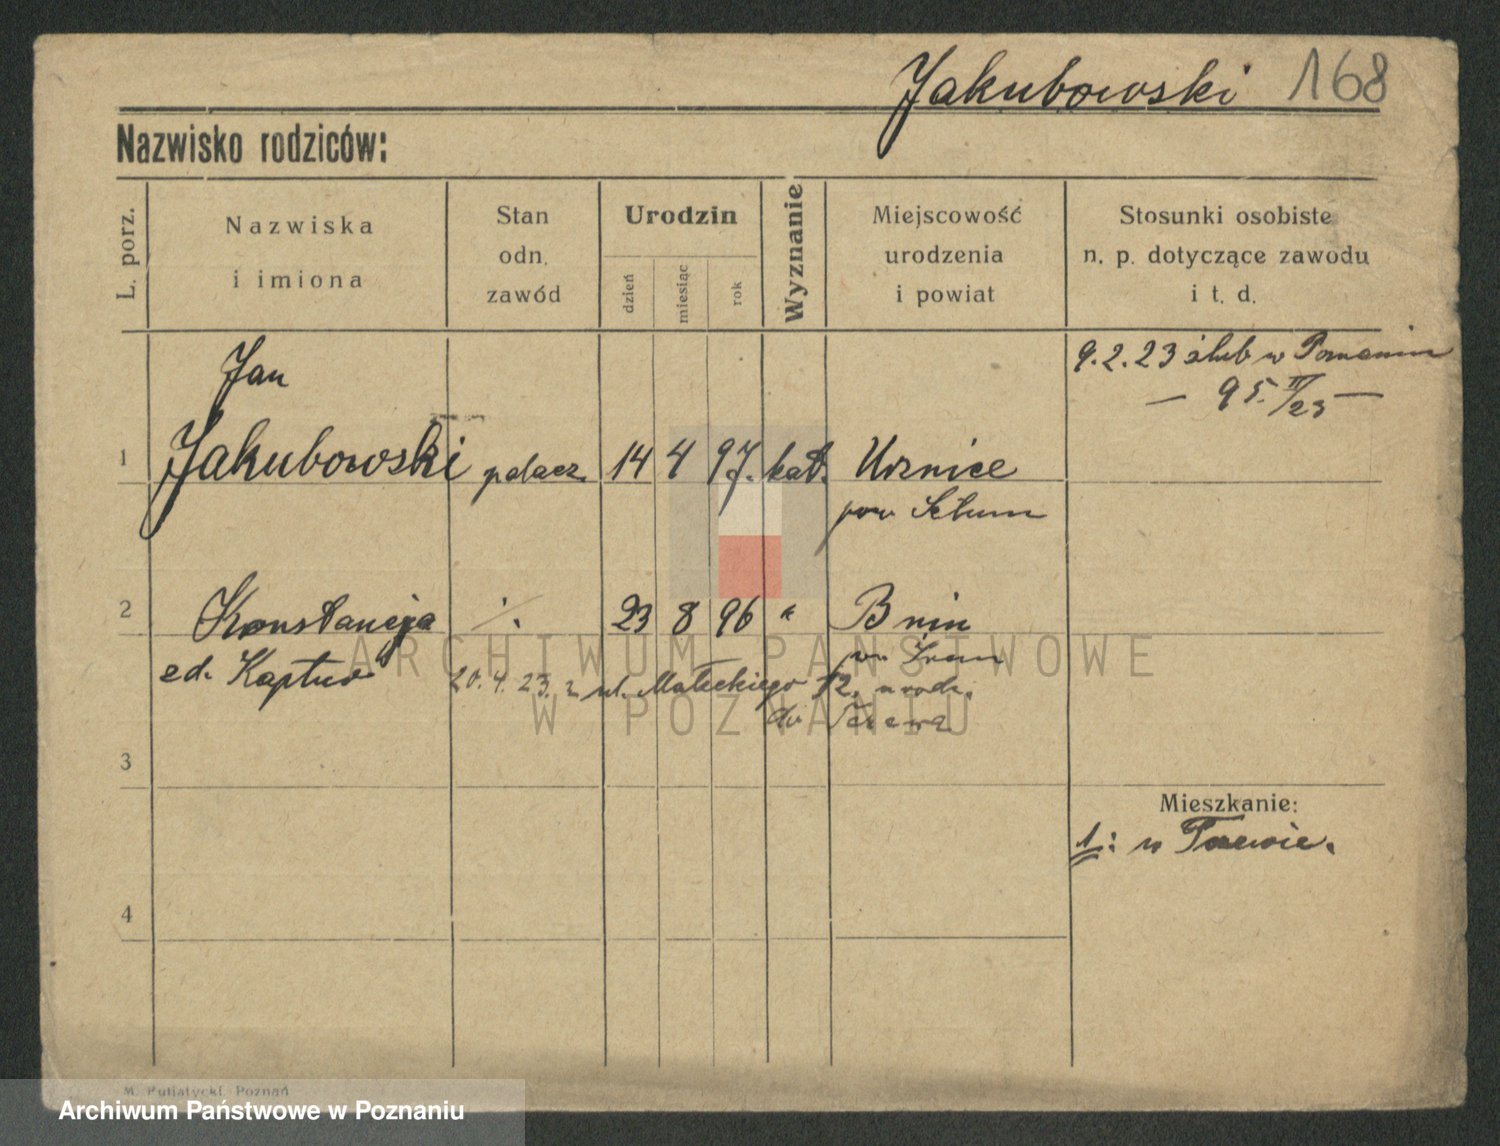 Jakubowski 168
Nazwisko rodziców:
L. porz.
Nazwiska
i imiona
Stan
odn.
zawód
Urodzin
dzień
miesiąc
rok
Wyznanie
Miejscowość
urodzenia
i powiat
Stosunki osobiste
n. p. dotyczące zawodu
i t. d.
9.2.23 ślub w Poznaniu
— 95. II/23 —
Jan
1 Jakubowski palacz. 14 4 97. kat.
pow
2 Konstancja ./. 23 8 96 " Bnin
zd.
20.4.23. z ul. Małeckiego 12.
do Tczewa
3
Mieszkanie:
1: w Tczewie.
4
M. Putiatycki, Poznań
ARCHIWUM PAŃSTWOWE
W POZNANIU
Archiwum Państwowe w Poznaniu